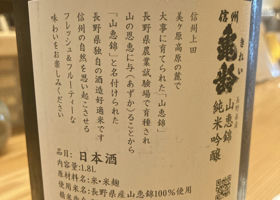 信州
亀齢
きれい
山恵錦
純米吟醸
信州上田
美ヶ原高原の麓で
大事に育てられた「山恵錦」
長野県農業試験場で育種され
山の恩恵に与(あずか)ることから
「山恵錦」と名付けられた
長野県独自の酒造好適米です
信州の自然を思い起こさせる
フレッシュ＆フルーティーな
味わいをお楽しみください
品目: 日本酒
内容量:1.8L
原材料名:米・米麹
使用米名:長野県産山恵錦100%使用